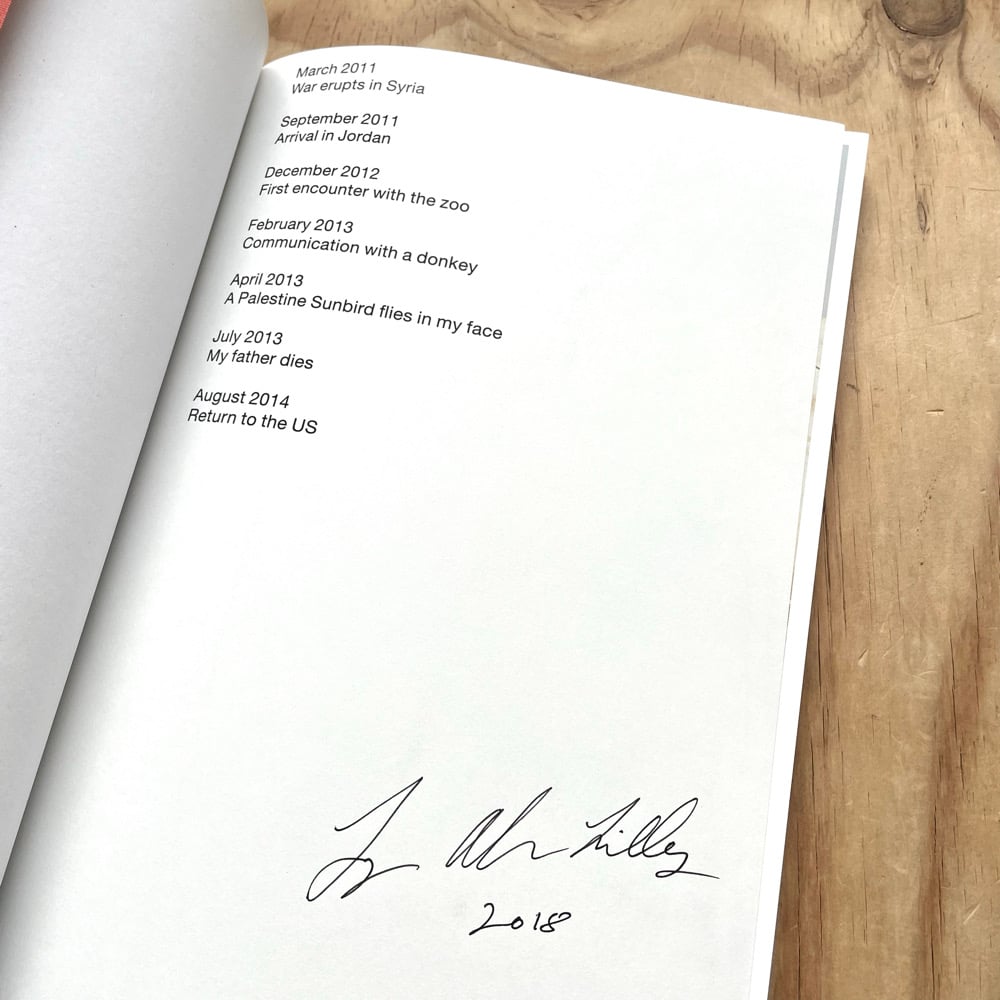 March 2011
War erupts in Syria
September 2011
Arrival in Jordan
December 2012
First encounter with the zoo
February 2013
Communication with a donkey
April 2013
A Palestine Sunbird flies in my face
July 2013
My father dies
August 2014
Return to the US
2018